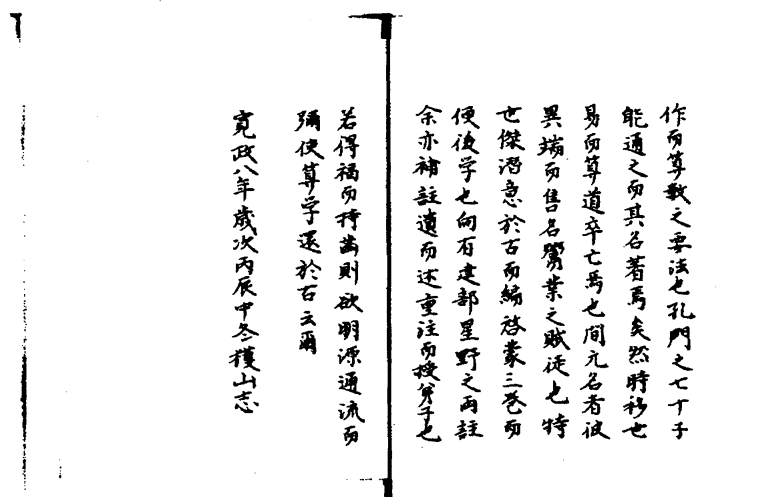 作而算数之要法也孔門之七十子
能通之而其名著焉矣然時移也
易而算道卒亡焉也間亢名者彼
異端而售名鬻業之賊徒也特
世傑潜急於古而編啓蒙三巻而
便後学也向有建部星野之両註
余亦補註遺而述重注而授弟子也
若得福而持歯則欲明源通流而
彌使算学還於古云爾
寛政八年歳次丙辰中冬穫山志